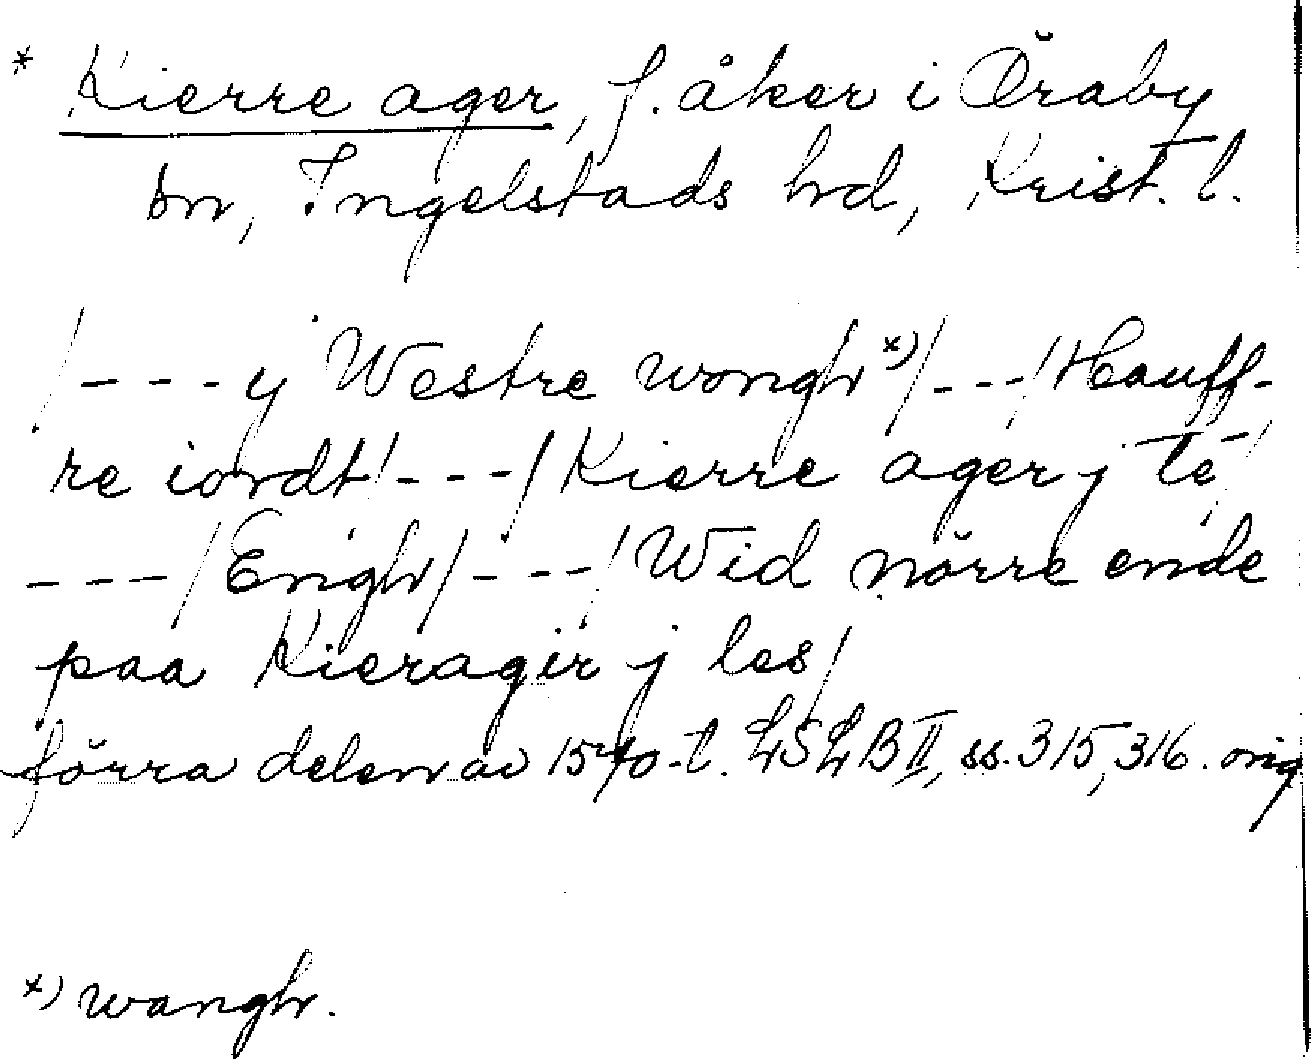 * Kierre ager, f. åker i Öraby
sn, Ingelstads hd, Krist. l.
/---y Westre wongh *)/---/Hauff-
re iordt/---/Kierre ager j té/
---/Engh/---/Wid nörre ende
paa Kieragir j les/
förra delen av 1570-t. LSLB II, ss. 315, 316. orig
*) wangh.